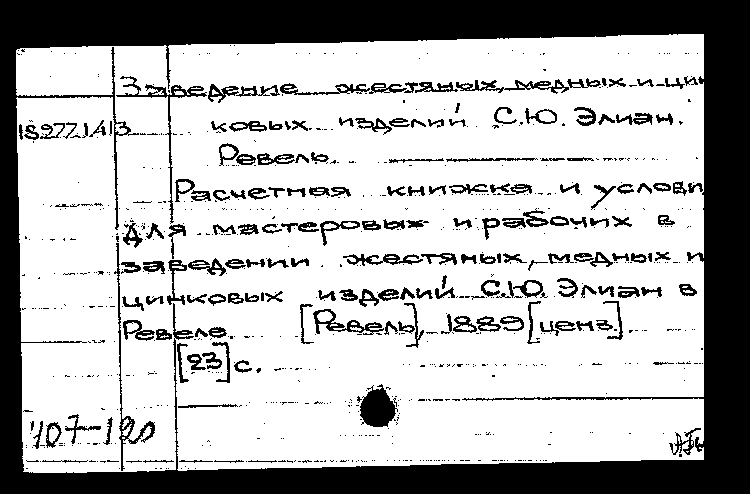 Заведение жестяных, медных и цин
1897.1.413 ковых изделий С.Ю. Элиан.
Ревель.
Расчетная книжка и услови
для мастеровых и рабочих в
заведении жестяных, медных и
цинковых изделий С.Ю. Элиан в
Ревеле. [Ревель], 1889 [ценз.].
[23] с.
107-120